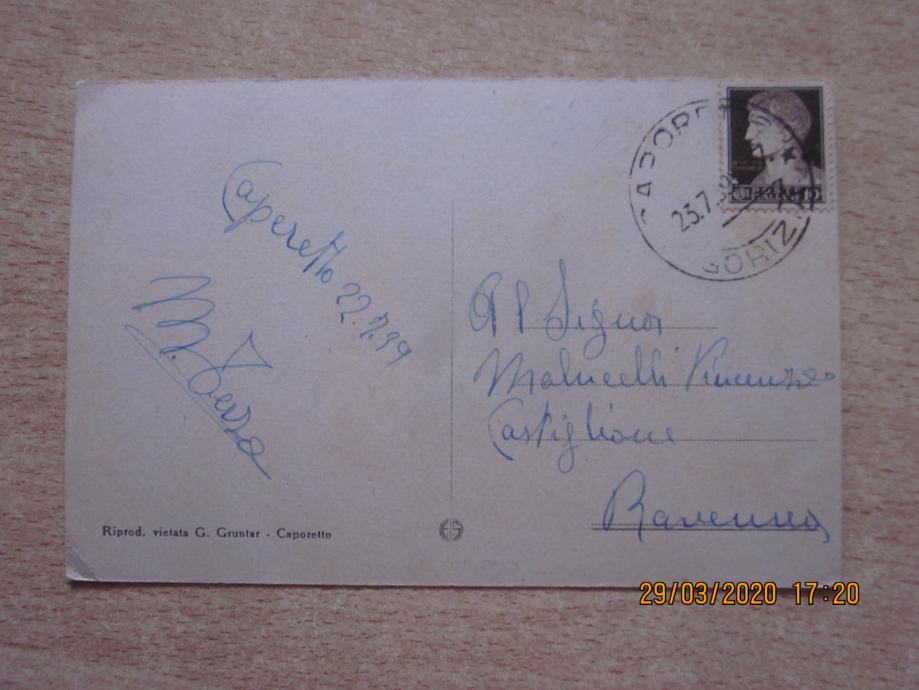 CAPORET
23.7.39
GORIZ
Caporetto 22.7.39
Al Signor
Malucelli Vincenzo
Castiglione
Ravenna
Riprod. vietata G. Gruntar - Caporetto
29/03/2020 17:20